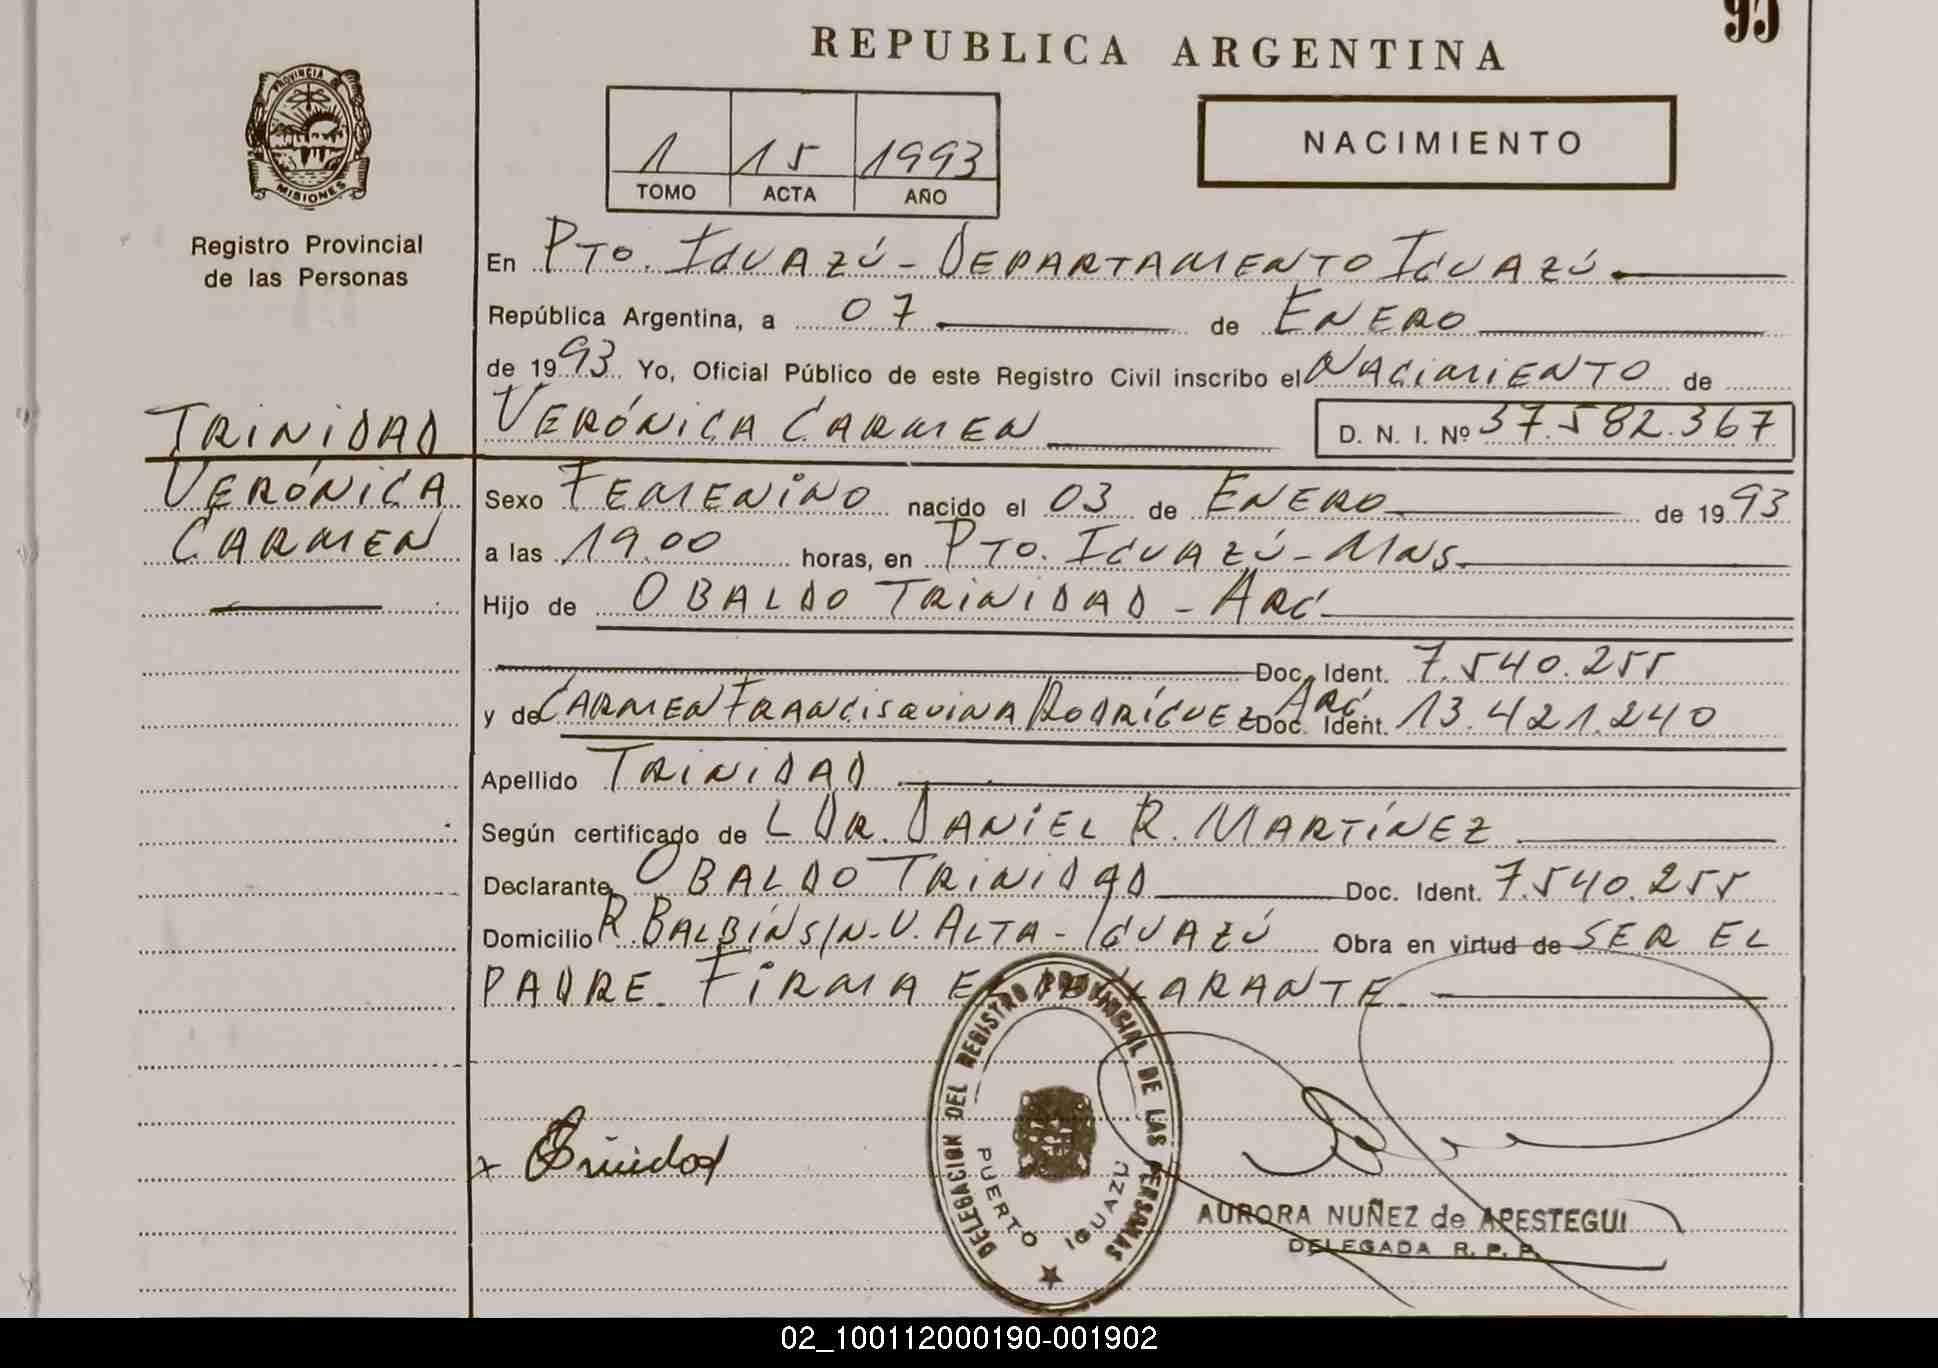 95
REPUBLICA ARGENTINA
PROVINCIA DE
MISIONES
Registro Provincial
de las Personas
1 15 1993
TOMO ACTA AÑO
NACIMIENTO
En PTO. IGUAZÚ - DEPARTAMENTO IGUAZÚ
República Argentina, a 07 de ENERO
de 1993 Yo, Oficial Público de este Registro Civil inscribo el NACIMIENTO de
TRINIDAD
VERÓNICA CARMEN D. N. I. Nº 37.582.367
VERÓNICA
CARMEN
Sexo FEMENINO nacido el 03 de ENERO de 1993
a las 19.00 horas, en PTO. IGUAZÚ - MNS.
Hijo de OBALDO TRINIDAD - ARG
Doc. Ident. 7.540.255
y de CARMEN FRANCISQUINA RODRÍGUEZ ARG. Doc. Ident. 13.421.240
Apellido TRINIDAD
Según certificado de L DR. DANIEL R. MARTÍNEZ
Declarante OBALDO TRINIDAD Doc. Ident. 7.540.255
Domicilio R. BALBÍN S/N - V. ALTA - IGUAZÚ Obra en virtud de SER EL
PADRE. FIRMA EL DECLARANTE.
DELEGACION DEL REGISTRO PROVINCIAL DE LAS PERSONAS
PUERTO IGUAZU
x
AURORA NUÑEZ de APESTEGUI
DELEGADA R. P. P.
02_100112000190-001902